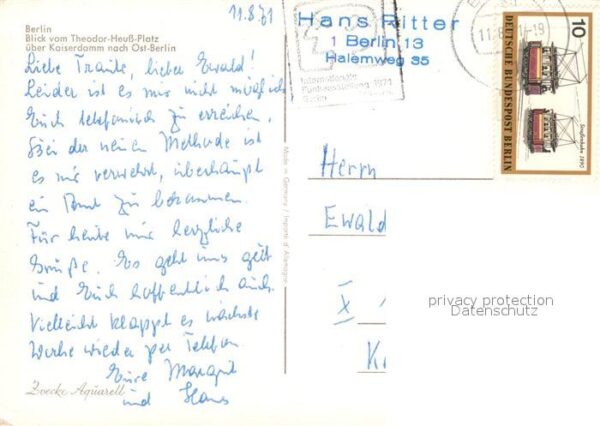 11.8.71
Berlin
Blick vom Theodor-Heuß-Platz
über Kaiserdamm nach Ost-Berlin
Liebe Traute, lieber Ewald!
Leider ist es mir nicht möglich,
Euch telefonisch zu erreichen.
Bei der neuen Methode ist
es mir verwehrt, überhaupt
ein Amt zu bekommen.
Für heute nur herzliche
Grüße. Es geht uns gut
und Euch hoffentlich auch.
Vielleicht klappt es nächste
Woche wieder per Telefon.
Eure Margrit
und Hans
Zvecke Aquarell
Made in Germany / Importé d'Allemagne
Hans Ritter
1 Berlin 13
Halemweg 35
Internationale
Funkausstellung 1971
Berlin
-19
10
DEUTSCHE BUNDESPOST BERLIN
Straßenbahn 1890
Herrn
Ewald
X
K
privacy protection
Datenschutz